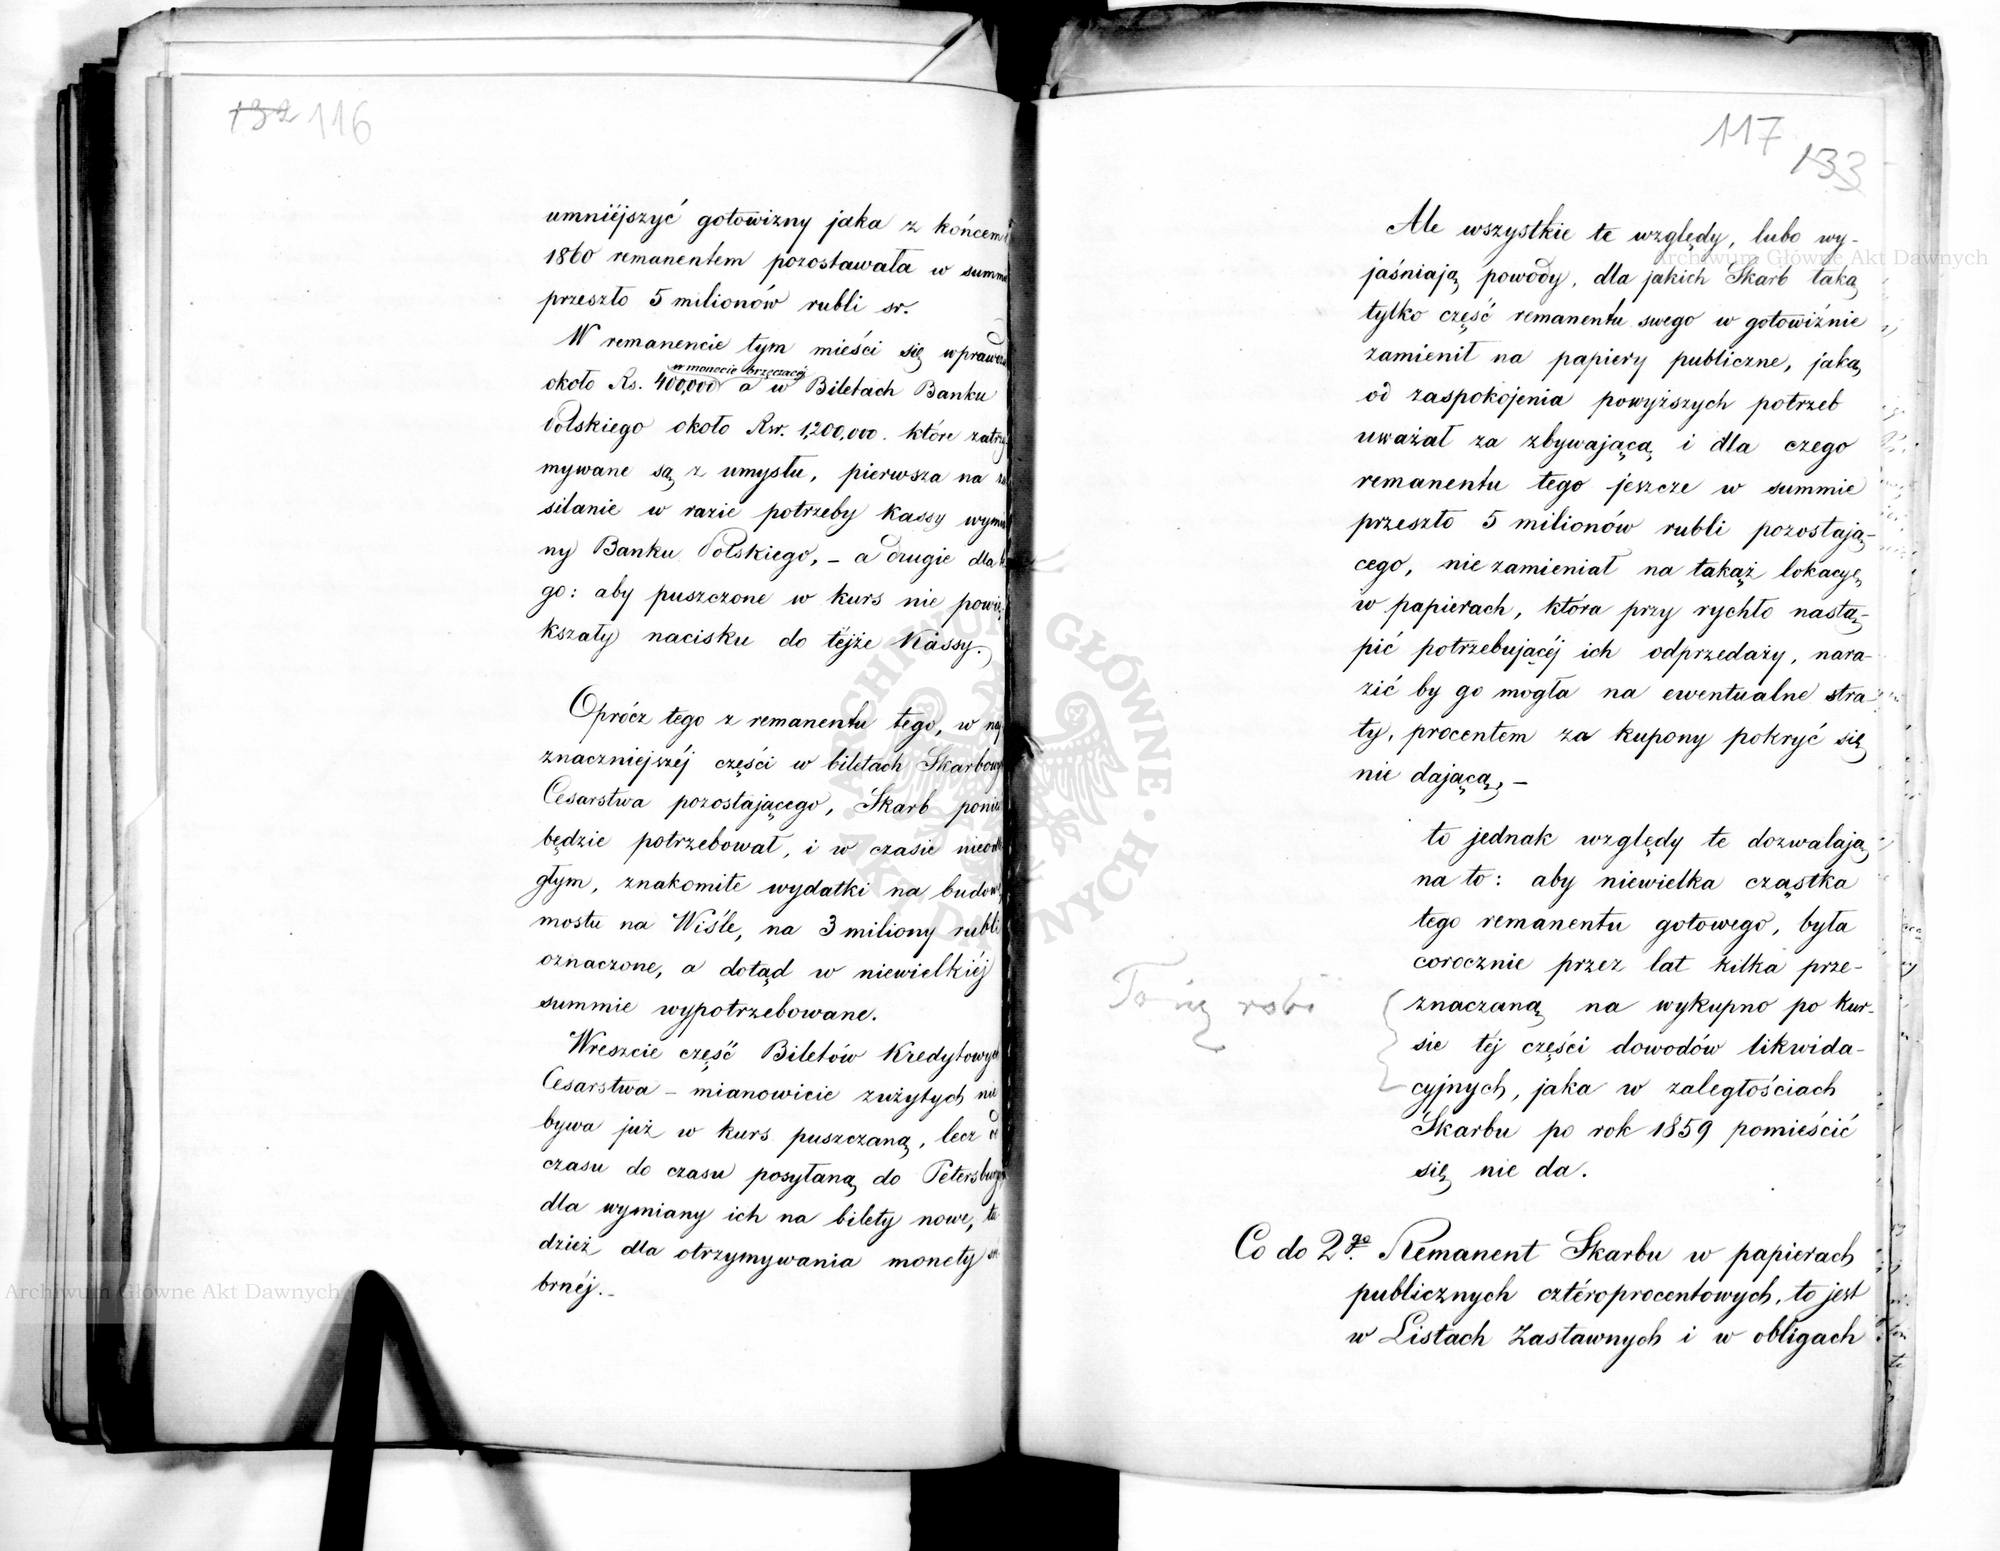 132 116
umniejszyć gotowizny jaka z końcem
1860 remanentem pozostawała w summie
przeszło 5 milionów rubli sr.
W remanencie tym mieści się wprawdzie
w monecie brzęczącéj
około Rs. 400,000 a w Biletach Banku
Polskiego około Rsr. 1,200,000. które zatrzy
mywane są z umysłu, pierwsza na za
silanie w razie potrzeby kassy wymia
ny Banku Polskiego, – a drugie dla te
go: aby puszczone w kurs nie powię
kszały nacisku do téjże Kassy.
Oprócz tego z remanentu tego, w naj
znaczniejszéj części w biletach Skarbowych
Cesarstwa pozostającego, Skarb ponieść
będzie potrzebował, i w czasie nieodle
głym, znakomite wydatki na budowę
mostu na Wiśle, na 3 miliony rubli
oznaczone, a dotąd w niewielkiéj
summie wypotrzebowane.
Wreszcie część Biletów Kredytowych
Cesarstwa – mianowicie zużytych nie
bywa już w kurs puszczaną, lecz od
czasu do czasu posyłaną do Petersburga
dla wymiany ich na bilety nowe, tu
dzież dla otrzymywania monety sre
brnéj. –
117
133
Ale wszystkie te względy, lubo wy-
jaśniają powody, dla jakich Skarb taką
tylko część remanentu swego w gotowiźnie
zamienił na papiery publiczne, jaką
od zaspokojenia powyższych potrzeb
uważał za zbywającą i dla czego
remanentu tego jeszcze w summie
przeszło 5 milionów rubli pozostają-
cego, nie zamieniał na takąż lokacyę
w papierach, która przy rychło nastą-
pić potrzebującéj ich odprzedaży, nara-
zić by go mogła na ewentualne stra-
ty, procentem za kupony pokryć się
nie dającą, –
to jednak względy te dozwalają
na to: aby niewielka cząstka
tego remanentu gotowego, była
corocznie przez lat kilka prze-
znaczaną na wykupno po kur-
sie téj części dowodów likwida-
cyjnych, jaka w zaległościach
Skarbu po rok 1859 pomieścić
się nie da.
To się robi
Co do 2go. Remanent Skarbu w papierach
publicznych cztéroprocentowych, to jest
w Listach Zastawnych i w obligach
Archiwum Główne Akt Dawnych
Archiwum Główne Akt Dawnych
ARCHIWUM GŁÓWNE AKT DAWNYCH